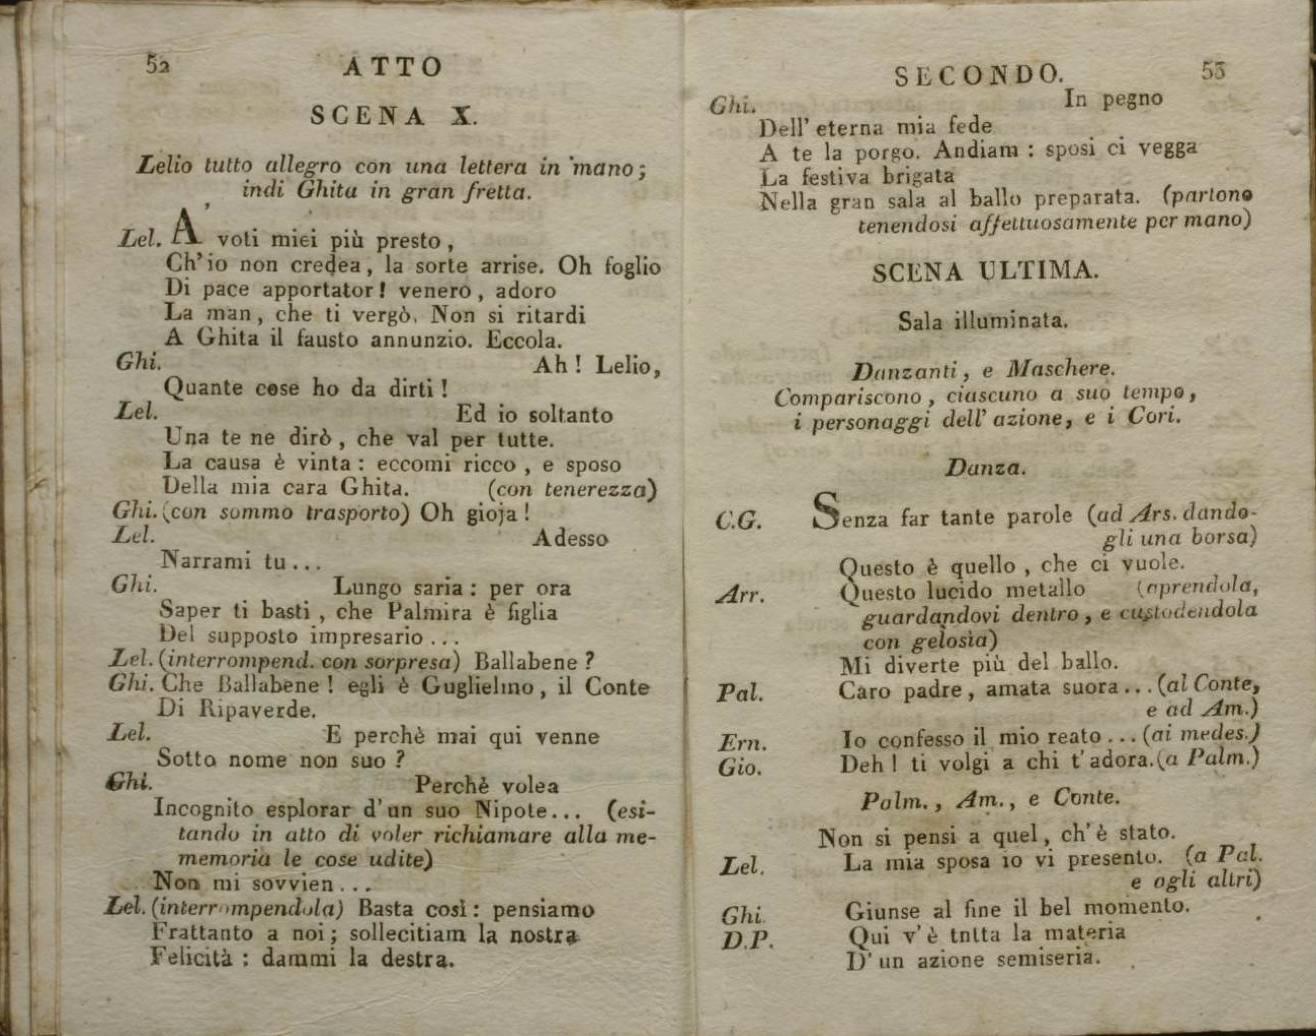 52
ATTO
SCENA X.
Lelio tutto allegro con una lettera in mano;
indi Ghita in gran fretta.
Lel. A' voti miei più presto,
Ch'io non credea, la sorte arrise. Oh foglio
Di pace apportator! venero, adoro
La man, che ti vergò. Non si ritardi
A Ghita il fausto annunzio. Eccola.
Ghi. Ah! Lelio,
Quante cose ho da dirti!
Lel. Ed io soltanto
Una te ne dirò, che val per tutte.
La causa è vinta: eccomi ricco, e sposo
Della mia cara Ghita. (con tenerezza)
Ghi. (con sommo trasporto) Oh gioja!
Lel. Adesso
Narrami tu...
Ghi. Lungo saria: per ora
Saper ti basti, che Palmira è figlia
Del supposto impresario...
Lel. (interrompend. con sorpresa) Ballabene?
Ghi. Che Ballabene! egli è Guglielmo, il Conte
Di Ripaverde.
Lel. E perchè mai qui venne
Sotto nome non suo?
Ghi. Perchè volea
Incognito esplorar d'un suo Nipote... (esi-
tando in atto di voler richiamare alla me-
memoria le cose udite)
Non mi sovvien...
Lel. (interrompendola) Basta così: pensiamo
Frattanto a noi; sollecitiam la nostra
Felicità: dammi la destra.
SECONDO.
53
Ghi. In pegno
Dell' eterna mia fede
A te la porgo. Andiam: sposi ci vegga
La festiva brigata
Nella gran sala al ballo preparata. (partono
tenendosi affettuosamente per mano)
SCENA ULTIMA.
Sala illuminata.
Danzanti, e Maschere.
Compariscono, ciascuno a suo tempo,
i personaggi dell' azione, e i Cori.
Danza.
C.G. Senza far tante parole (ad Ars. dando-
gli una borsa)
Questo è quello, che ci vuole.
Arr. Questo lucido metallo (aprendola,
guardandovi dentro, e custodendola
con gelosìa)
Mi diverte più del ballo.
Pal. Caro padre, amata suora... (al Conte,
e ad Am.)
Ern. Io confesso il mio reato... (ai medes.)
Gio. Deh! ti volgi a chi t'adora. (a Palm.)
Palm., Am., e Conte.
Non si pensi a quel, ch'è stato.
Lel. La mia sposa io vi presento. (a Pal.
e ogli altri)
Ghi. Giunse al fine il bel momento.
D.P. Qui v'è tntta la materia
D'un azione semiseria.